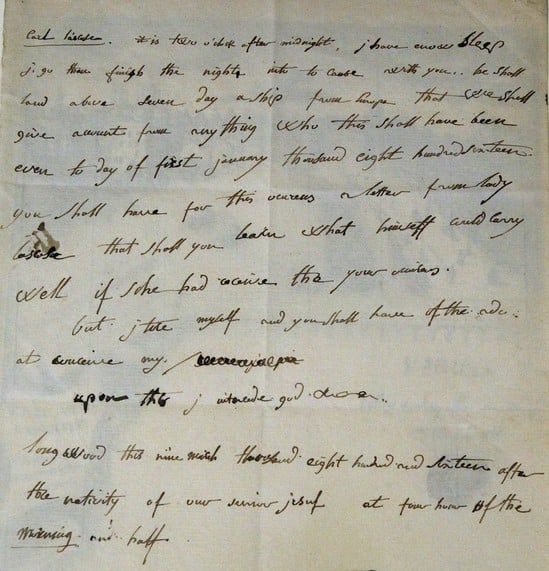 Carl lascase. it is two o'clok after midnight, j have enow sleep
j. go then finish the night into to cause with you.. he shall
land above seven day a ship from Europe that we shall
give account from anything who this shall have been
even to day of first january thousand eight hundred sixteen.
you shall have for this a letter from lady
lascase that shall you learn what himself could carry
well if sche had receive the your
but j tire myself and you shall have of the ado.
at conceive my
upon this j intercede god
longwood this nine thousand eight hundred and sixteen after
the nativity of our jesus at four hour of the
and half